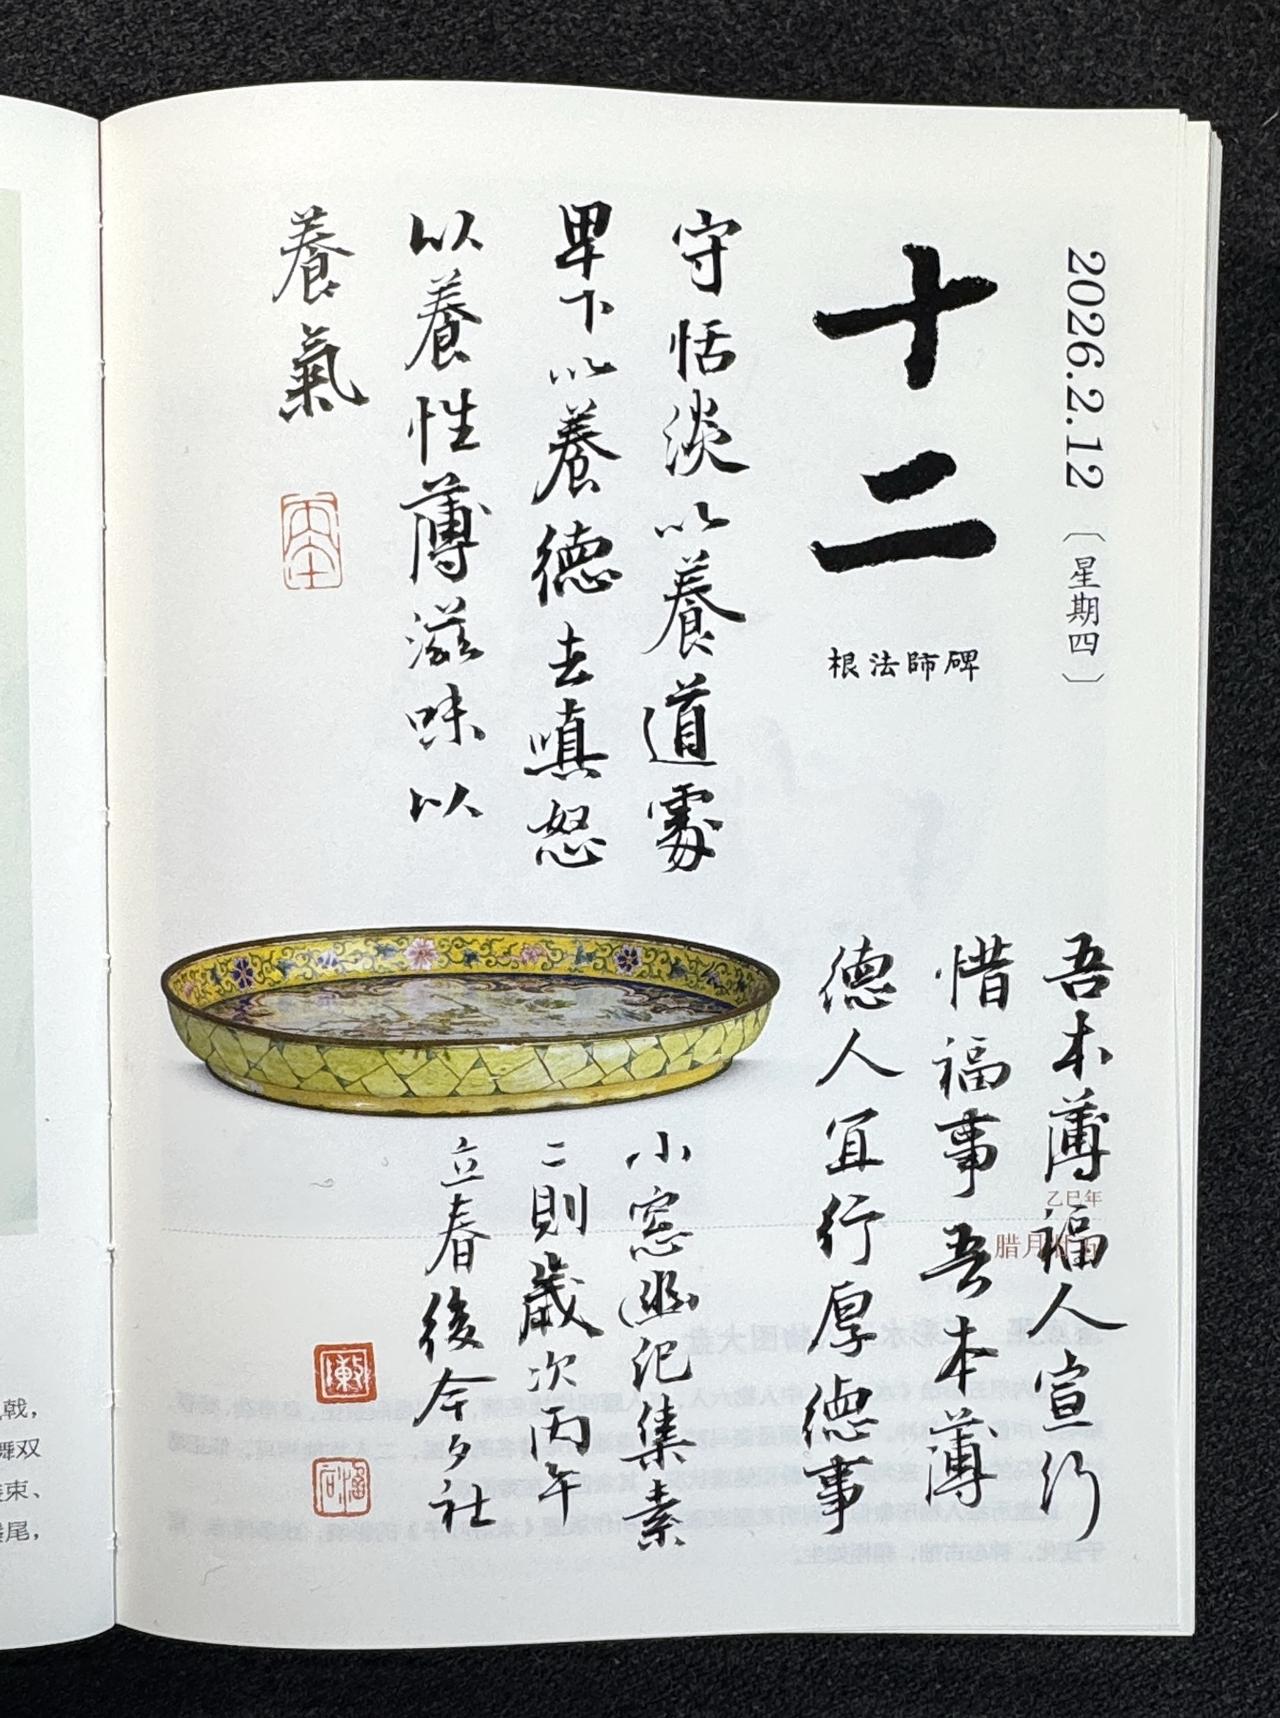 2026.2.12〔星期四〕
十二
根法師碑
守恬淡以養道處
卑下以養德去嗔怒
以養性薄滋味以
養氣
吾本薄福人宜行
惜福事吾本薄
德人宜行厚德事
乙巳年
腊月廿五
小窓幽记集素
二則歲次丙午
立春後今夕社
戟，
舞双
束、
尾，